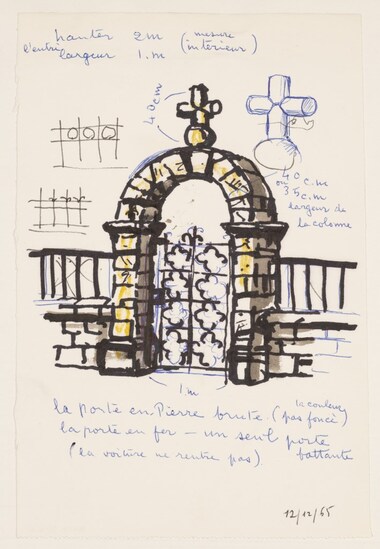 hauter 2m (mesure
intérieur)
l'entré largeur 1.m
40cm
40c.m
ou
35c.m
largeur de
la colonne
1m
la porte en Pierre brute (la couleur
pas foncé)
la porte en fer – un seul porte
battante
(la voiture ne rentre pas)
12/12/65